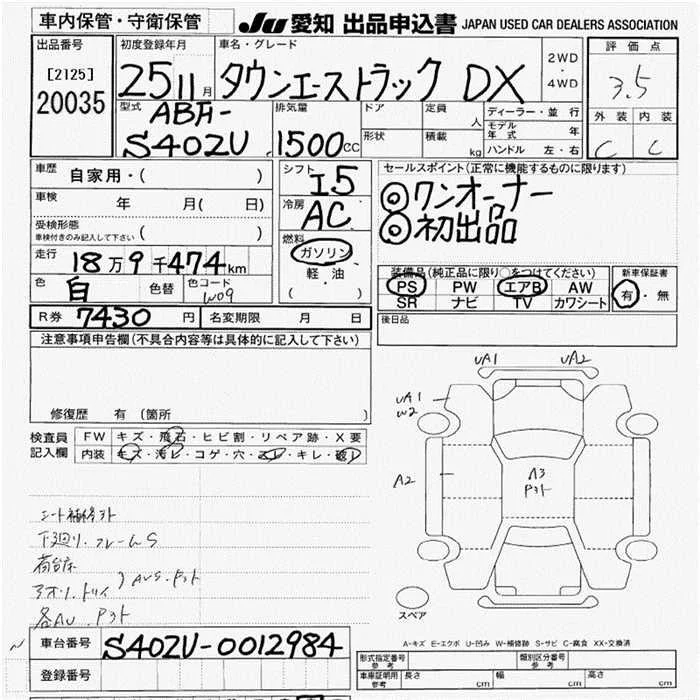 車内保管・守衛保管
JU 愛知 出品申込書 JAPAN USED CAR DEALERS ASSOCIATION
出品番号
[2125]
20035
初度登録年月
25 11 月
車名・グレード
タウンエーストラック DX
2WD
・
4WD
評価点
3.5
外装 内装
C C
型式
ABF-
S402U
排気量
1500cc
ドア
形状
定員 人
積載 kg
ディーラー・並行
モデル年式 年
ハンドル 左・右
車歴 自家用・( )
車検 年 月( 日)
受検形態
車検付きのみ記入して下さい ( )
走行 18万9千474km
色 白 色替 色コード W09
R券 7430 円 名変期限 月 日
シフト I5
冷房 AC
燃料
ガソリン
軽・油
( )
セールスポイント(正常に機能するものに限ります)
◎ワンオーナー
◎初出品
装備品(純正品に限り○をつけてください)
PS PW エアB AW
SR ナビ TV カワシート
新車保証書
有・無
後日品
注意事項申告欄(不具合内容等は具体的に記入して下さい)
修復歴 有(箇所 )
検査員
記入欄
FW キズ・飛石・ヒビ割・リペア跡・X要
内装 キズ・汚レ・コゲ・穴・スレ・キレ・破レ
シート補修アト
下廻り、フレームS
荷台床
アオリ、トリイ
AUS、Pアト
各AU、Pアト
UA1 UA2
UA1
W2
A2
A3
Pアト
スペア
A-キズ E-エクボ U-凹み W-補修跡 S-サビ C-腐食 XX-交換済
車台番号 S402U-0012984
登録番号
形式指定番号
参考
類別区分番号
参考
車庫証明用
参考
長さ cm 幅 cm 高さ cm